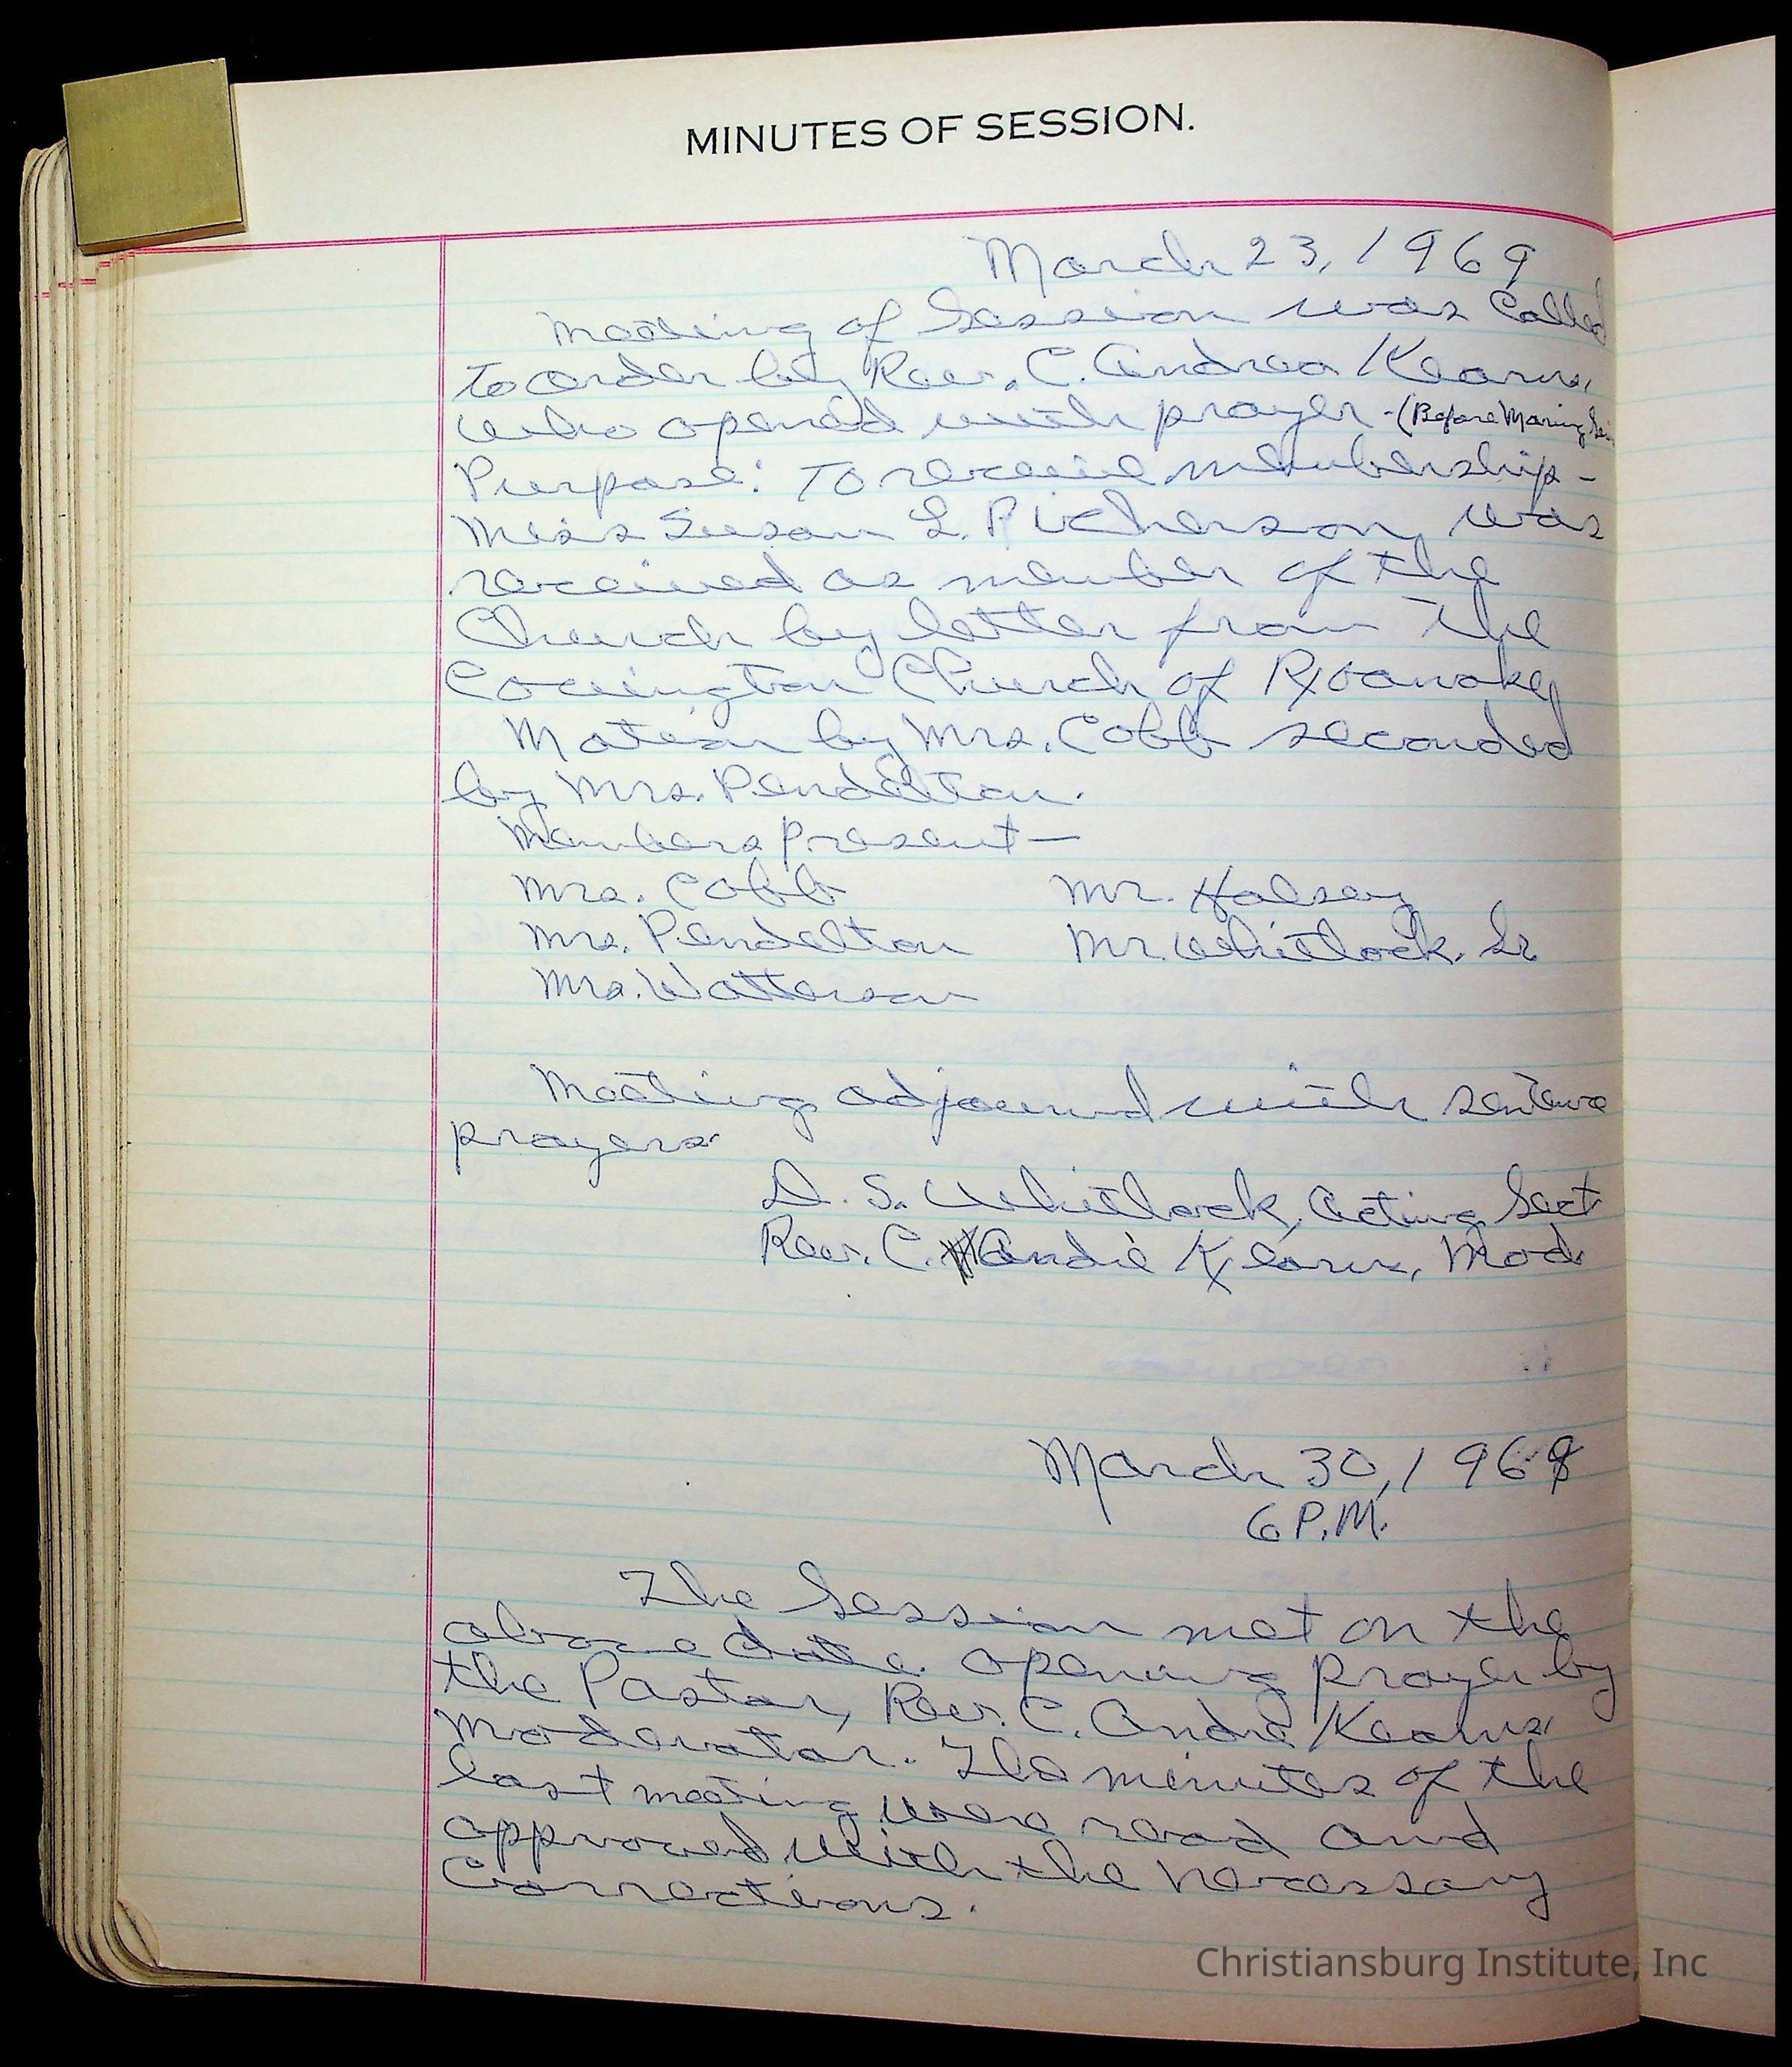 MINUTES OF SESSION.
March 23, 1969
Meeting of Session was Called
to order by Rev. C. Andrea Kearns,
who opened with prayer - (Before Morning
Purpose: To receive membership -
Miss Susan L. Pickerson, was
received as member of the
Church by letter from The
Covington Church of Roanoke
Motion by Mrs. Cobb seconded
by Mrs. Pendelton.
Members present —
Mrs. Cobb Mr. Halsey
Mrs. Pendelton Mr. Whitlock, Sr.
Mrs. Watterson
Meeting adjournd with sentence
prayers.
D. S. Whitlock, Acting Sect
Rev. C. André Kearns, Mod.
March 30, 1969
6 P.M.
The Session met on the
above date. Opening prayer by
the Pastor, Rev. C. André Kearns,
Moderator. The minutes of the
last meeting were read and
approved with the necessary
Corrections.
Christiansburg Institute, Inc